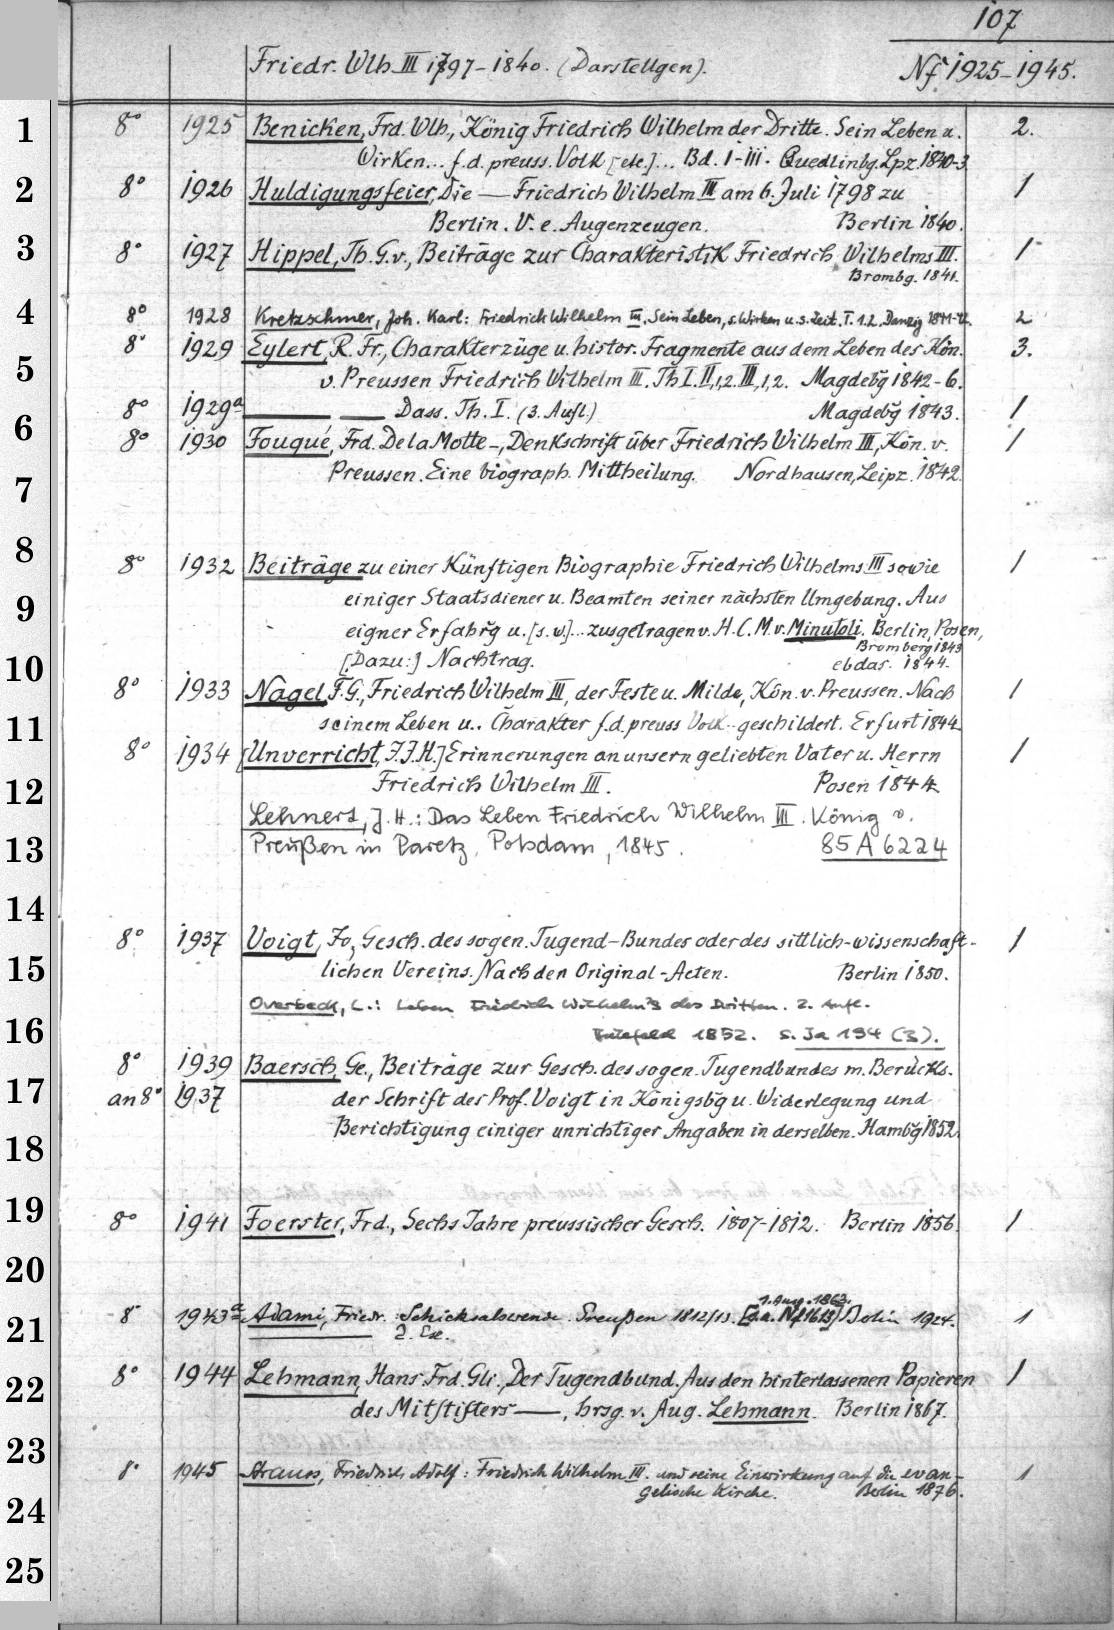 107
Friedr. Wlh. III 1797-1840. (Darstellgen).
Nf 1925-1945.
1 8° 1925 Benicken, Frd. Wlh., König Friedrich Wilhelm der Dritte. Sein Leben u. 2.
Wirken... f. d. preuss. Volk [etc.]... Bd. I-III. Quedlinbg. Lpz. 1840-3.
2 8° 1926 Huldigungsfeier, Die — Friedrich Wilhelm III am 6. Juli 1798 zu 1
Berlin. V. e. Augenzeugen. Berlin 1840.
3 8° 1927 Hippel, Th. G. v., Beiträge zur Charakteristik Friedrich Wilhelms III. 1
Brombg. 1841.
4 8° 1928 Kretzschmer, Joh. Karl: Friedrich Wilhelm III. Sein Leben, s. Wirken u. s. Zeit. T. 1.2. Danzig 1841-42. 2
5 8° 1929 Eylert, R. Fr., Charakterzüge u. histor. Fragmente aus dem Leben des Kön. 3.
v. Preussen Friedrich Wilhelm III. Th I. II,1,2. III,1,2. Magdebg 1842-6.
6 8° 1929a —— — Dass. Th. I. (3. Aufl.) Magdebg 1843. 1
8° 1930 Fouqué, Frd. De la Motte-, Denkschrift über Friedrich Wilhelm III, Kön. v. 1
7 Preussen. Eine biograph. Mittheilung. Nordhausen, Leipz. 1842.
8 8° 1932 Beiträge zu einer Künftigen Biographie Friedrich Wilhelms III sowie 1
9 einiger Staatsdiener u. Beamten seiner nächsten Umgebung. Aus
eigner Erfahrg u. [s. w.]... zusgetragen v. H. C. M. v. Minutoli. Berlin, Posen,
Bromberg 1843
10 [Dazu:] Nachtrag. ebdas. 1844.
8° 1933 Nagel F. G., Friedrich Wilhelm III, der Feste u. Milde, Kön. v. Preussen. Nach 1
11 seinem Leben u.. Charakter f. d. preuss Volk.. geschildert. Erfurt 1844
8° 1934 [Unverricht, J. J. H.] Erinnerungen an unsern geliebten Vater u. Herrn 1
12 Friedrich Wilhelm III. Posen 1844
Lehnert, J. H.: Das Leben Friedrich Wilhelm III. König v.
13 Preußen in Paretz. Potsdam, 1845. 85 A 6224
14
8° 1937 Voigt, Jo, Gesch. des sogen. Tugend-Bundes oder des sittlich-wissenschaft- 1
15 lichen Vereins. Nach den Original-Acten. Berlin 1850.
Overbeck, L.: Leben Friedrich Wilhelm's des Dritten. 2. Aufl.
16 Bielefeld 1852. s. Ja 194 (3).
8° 1939 Baersch, Ge., Beiträge zur Gesch. des sogen. Tugendbundes m. Berücks.
17 an 8° 1937 der Schrift des Prof. Voigt in Königsbg u. Widerlegung und
18 Berichtigung einiger unrichtiger Angaben in derselben. Hambg 1852.
19 8° 1941 Foerster, Frd., Sechs Jahre preussischer Gesch. 1807-1812. Berlin 1856. 1
20
1. Ausg. 1863.
21 8° 1943a Adami, Friedr.: Schicksalswende. Preußen 1812/13. [s. a. Nf 1613] Berlin 1924. 1
2. Ex.
22 8° 1944 Lehmann, Hans Frd. Gli., Der Tugendbund. Aus den hinterlassenen Papieren 1
des Mitstifters —, hrsg. v. Aug. Lehmann. Berlin 1867.
23
8° 1945 Strauss, Friedrich Adolf: Friedrich Wilhelm III. und seine Einwirkung auf die evan- 1
24 gelische Kirche. Berlin 1876.
25